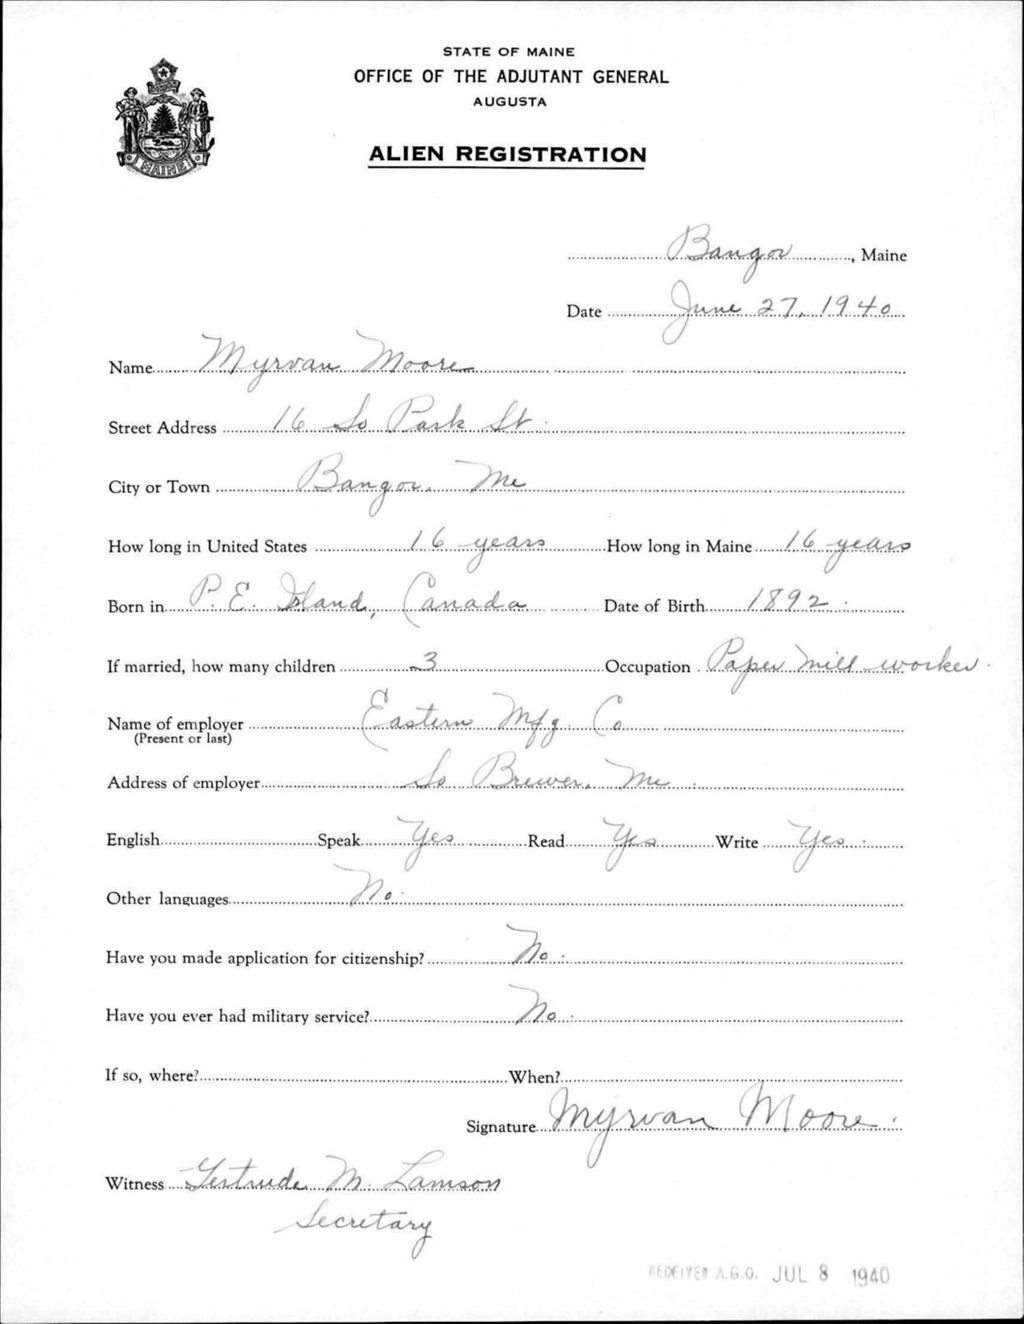 STATE OF MAINE
OFFICE OF THE ADJUTANT GENERAL
AUGUSTA
MAINE
ALIEN REGISTRATION
Bangor, Maine
Date June 27, 1940
Name Myrvan Moore
Street Address 16 So Park St.
City or Town Bangor, Me
How long in United States 16 years How long in Maine 16 years
Born in P. E. Island, Canada Date of Birth 1892.
If married, how many children 3 Occupation Paper mill worker.
Name of employer Eastern Mfg. Co
(Present or last)
Address of employer So Brewer, Me.
English Speak Yes Read Yes Write Yes.
Other languages No.
Have you made application for citizenship? No.
Have you ever had military service? No.
If so, where? When?
Signature Myrvan Moore.
Witness Gertrude M. Lamson
Secretary
RECEIVED A.G.O. JUL 8 1940